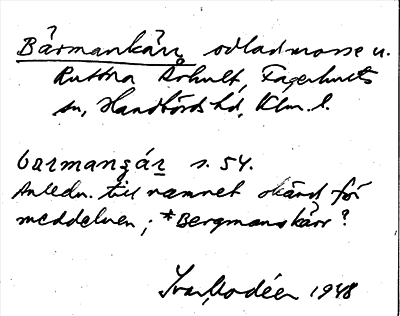 Bärmankärr odladmosse u.
Ruttna Arhult, Fagerhults
sn, Handbörds hd, Klm. l.
barmangár s. 54.
Anledn. till namnet okänd för
meddelaren; *Bergmanskärr?
Ivar Modéer 1948